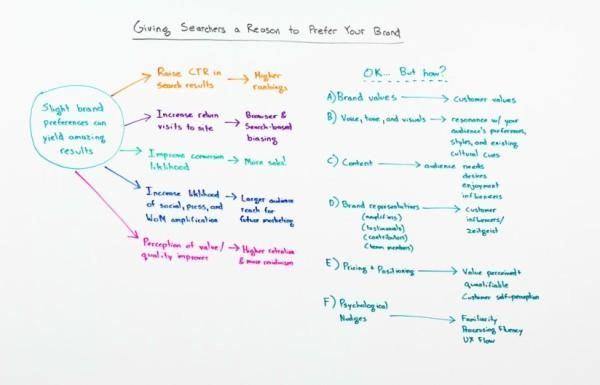 Giving Searchers a Reason to Prefer Your Brand
Slight brand
preferences can
yield amazing
results
Raise CTR in
search results
Higher
rankings
Increase return
visits to site
Browser &
Search-based
biasing
Improve conversion
liklihood
More sales!
Increase liklihood
of social, press, and
WoM amplification
Larger audience
reach for
future marketing
Perception of value/
quality improves
Higher retention
& more evangelism
OK... But how?
A) Brand values
Customer values
B) Voice, tone, and visuals
resonance w/ your
audience's preferences,
styles, and existing
cultural cues
C) Content
audience needs
desires
enjoyment
influencers
D) Brand representatives
(amplifiers)
(testimonials)
(contributors)
(team members)
Customer
influencers/
zeitgeist
E) Pricing + Positioning
Value perceived +
quantifiable
Customer self-perception
F) Psychological
Nudges
Familiarity
Processing Fluency
UX Flow